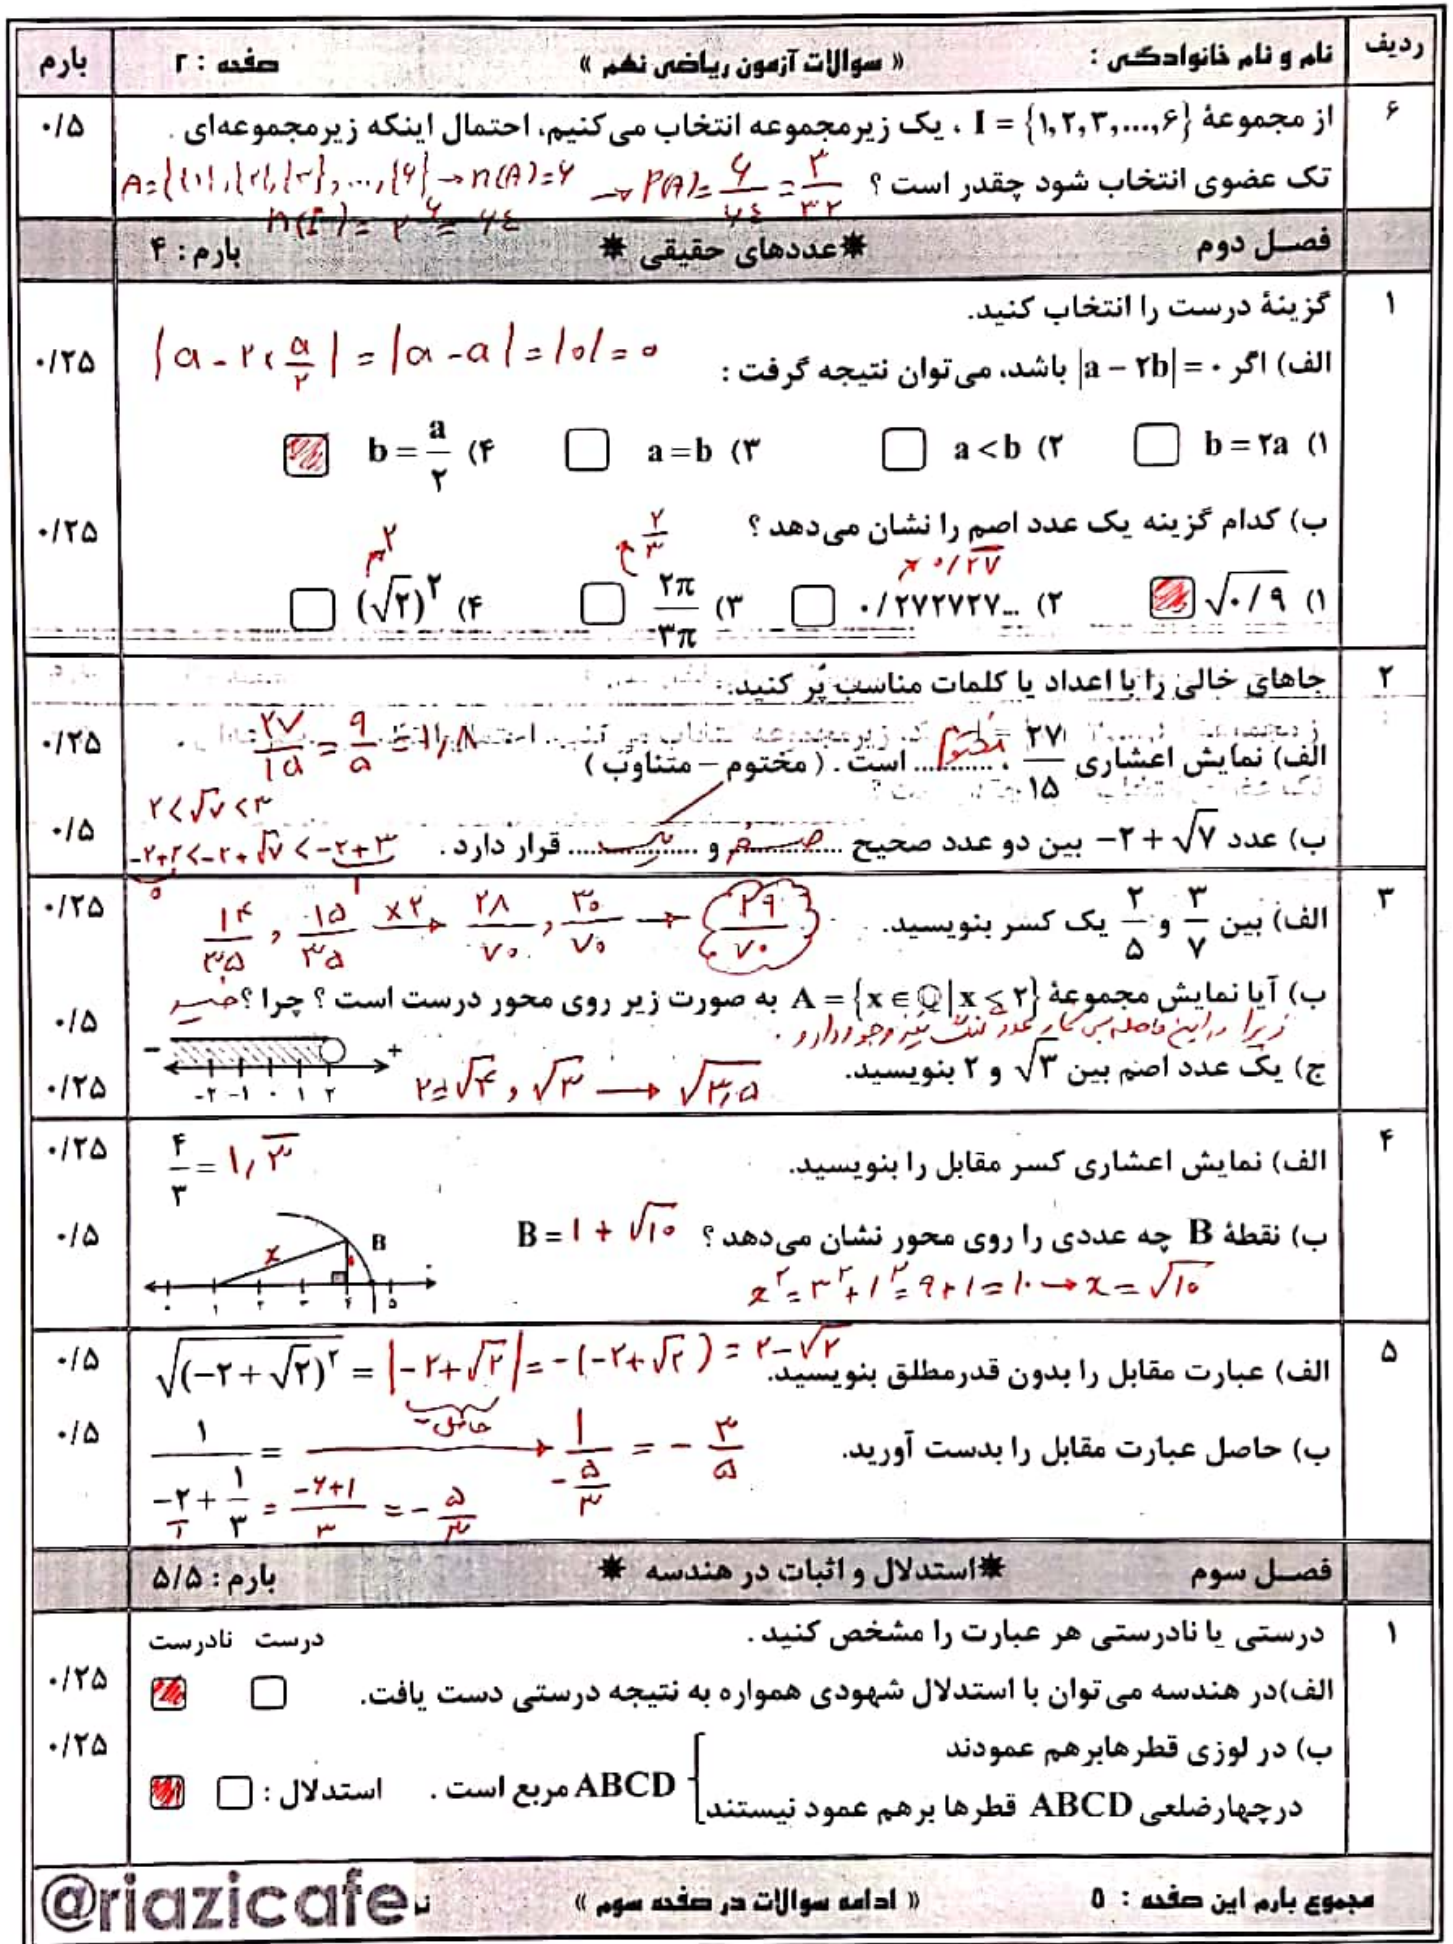 ردیف نام و نام خانوادگی : « سوالات آزمون ریاضی نهم » صفحه : ۲ بارم
۶ از مجموعهٔ I = {۱,۲,۳,...,۶} ، یک زیرمجموعه انتخاب می‌کنیم، احتمال اینکه زیرمجموعه‌ای . ۰/۵
تک عضوی انتخاب شود چقدر است ؟ A={{۱},{۲},{۳},...,{۶} → n(A)=۶ → P(A)= ۶/۶۴ = ۳/۳۲
۲^۶ = ۶۴
فصل دوم *عددهای حقیقی * بارم : ۴
۱ گزینهٔ درست را انتخاب کنید.
الف) اگر |a − ۲b| = ۰ باشد، می‌توان نتیجه گرفت : |a − ۲×a/۲| = |a − a| = |۰| = ۰ ۰/۲۵
۱) b = ۲a ۲) a < b ۳) a = b ۴) b = a/۲
ب) کدام گزینه یک عدد اصم را نشان می‌دهد ؟ ۰/۲۵
۲/۳ ۲ ۰/۲۷
۱) √۰/۹ ۲) ۰/۲۷۲۷۲۷... ۳) ۲π/۳π ۴) (√۲)^۲
۲ جاهای خالی را با اعداد یا کلمات مناسب پُر کنید.
الف) نمایش اعشاری ۲۷/۱۵ ، مختوم است . ( مختوم – متناوب ) ۲۷/۱۵ = ۹/۵ = ۱,۸ ۰/۲۵
۲<√۷<۳
ب) عدد −۲+√۷ بین دو عدد صحیح صفر و یک قرار دارد . −۲+۲<−۲+√۷<−۲+۳ ۰/۵
۰ ۱
۳ الف) بین ۳/۷ و ۲/۵ یک کسر بنویسید. ۱۴/۳۵ , ۱۵/۳۵ ×۲→ ۲۸/۷۰ , ۳۰/۷۰ → ۲۹/۷۰ ۰/۲۵
ب) آیا نمایش مجموعهٔ A = {x ∈ ℚ | x ≤ ۲} به صورت زیر روی محور درست است ؟ چرا ؟ خیر ۰/۵
زیرا در این فاصله بی شمار عدد گنگ نیز وجود دارد .
− +
−۲ −۱ ۰ ۱ ۲
ج) یک عدد اصم بین √۳ و ۲ بنویسید. ۲=√۴ , √۳ → √۳,۵ ۰/۲۵
۴ الف) نمایش اعشاری کسر مقابل را بنویسید. ۴/۳ = ۱,۳̅ ۰/۲۵
ب) نقطهٔ B چه عددی را روی محور نشان می‌دهد ؟ B = ۱ + √۱۰ ۰/۵
x² = ۳² + ۱² = ۹+۱ = ۱۰ → x = √۱۰
x B
۰ ۱ ۲ ۳ ۴ ۵
۵ الف) عبارت مقابل را بدون قدرمطلق بنویسید. √(−۲+√۲)^۲ = |−۲+√۲| = −(−۲+√۲) = ۲−√۲ ۰/۵
ب) حاصل عبارت مقابل را بدست آورید. ۱ = → ۱/(−۵/۳) = −۳/۵ ۰/۵
−۲/۱ + ۱/۳ = (−۶+۱)/۳ = −۵/۳
فصل سوم *استدلال و اثبات در هندسه * بارم : ۵/۵
۱ درستی یا نادرستی هر عبارت را مشخص کنید . درست نادرست
الف)در هندسه می‌توان با استدلال شهودی همواره به نتیجه درستی دست یافت. ۰/۲۵
ب) در لوزی قطرهابرهم عمودند ۰/۲۵
درچهارضلعی ABCD قطرها برهم عمود نیستند ABCD مربع است . استدلال :
مجموع بارم این صفحه : ۵ « ادامه سوالات در صفحه سوم »
@riazicafe